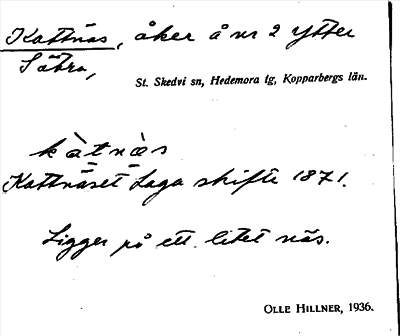 Kattnäs, åker å nr 2 Ytter
Sätra,
St. Skedvi sn, Hedemora tg, Kopparbergs län.
kàtnàs
Kattnäset Laga skifte 1871.
Ligger på ett litet näs.
OLLE HILLNER, 1936.